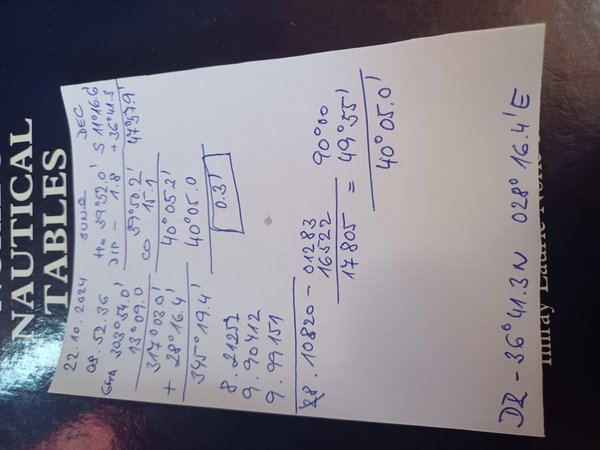 NAUTICAL
TABLES
22.10.2024 SUN DEC
08.52.36 39°52.0' S 11°16.6'
GHA 303°54.0' DIP - 1.8 +36°41.3
13°09.0 39°50.2' 47°57.9'
317°03.0' CO 15.1
+ 28°16.4' 40°05.2'
345°19.4' 40°05.0
0.3'
8.21257
9.90412
9.99151
8.10820 - 01283
16522 90°00
17805 = 49°55'
40°05.0'
DR - 36°41.3 N 028° 16.4'E
Imray Laurie Norie